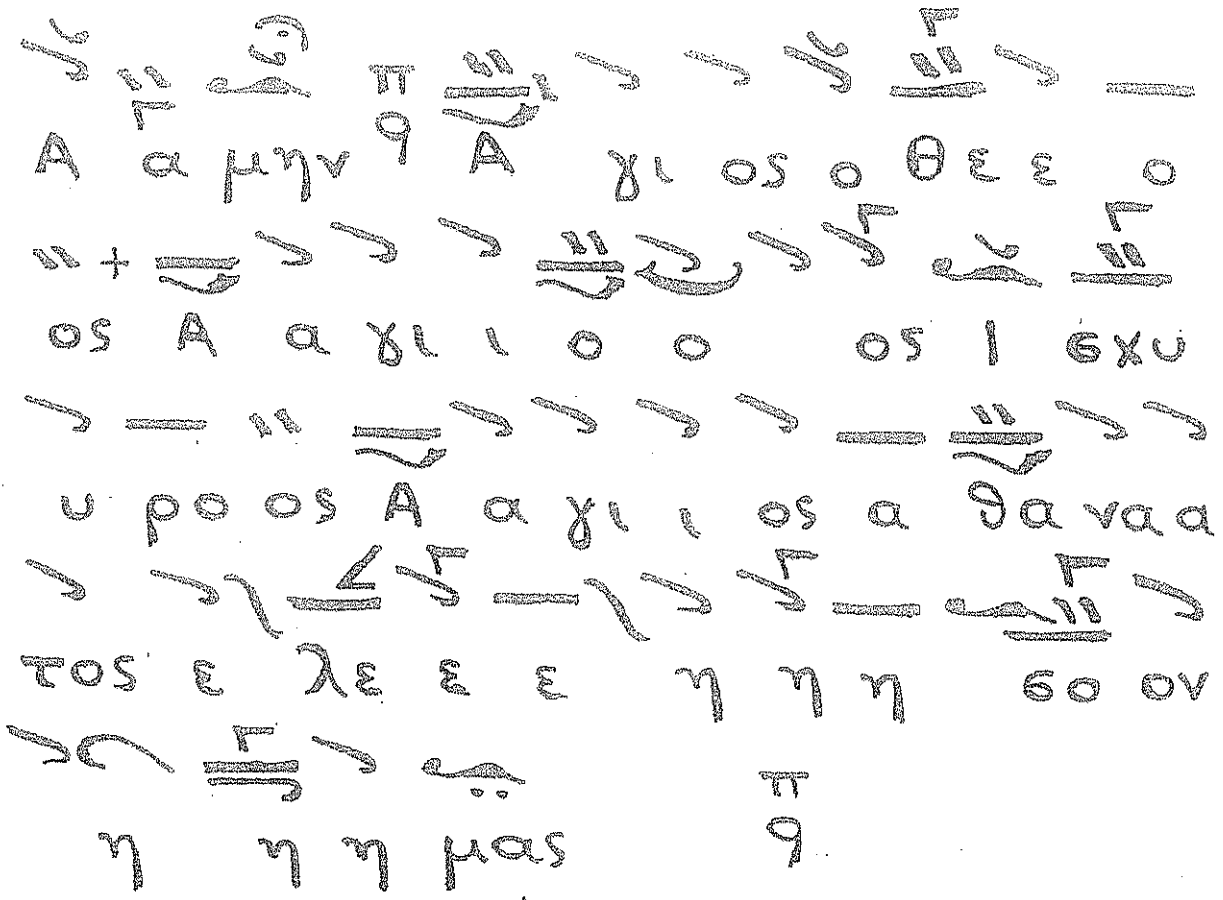 Α α μην π q Α γι ος ο Θε ε ο
ος Α α γι ι ο ο ος Ι σχυ
υ ρο ος Α α γι ι ος α θα ναα
τος ε λε ε ε η η η σο ον
η η η μας π q